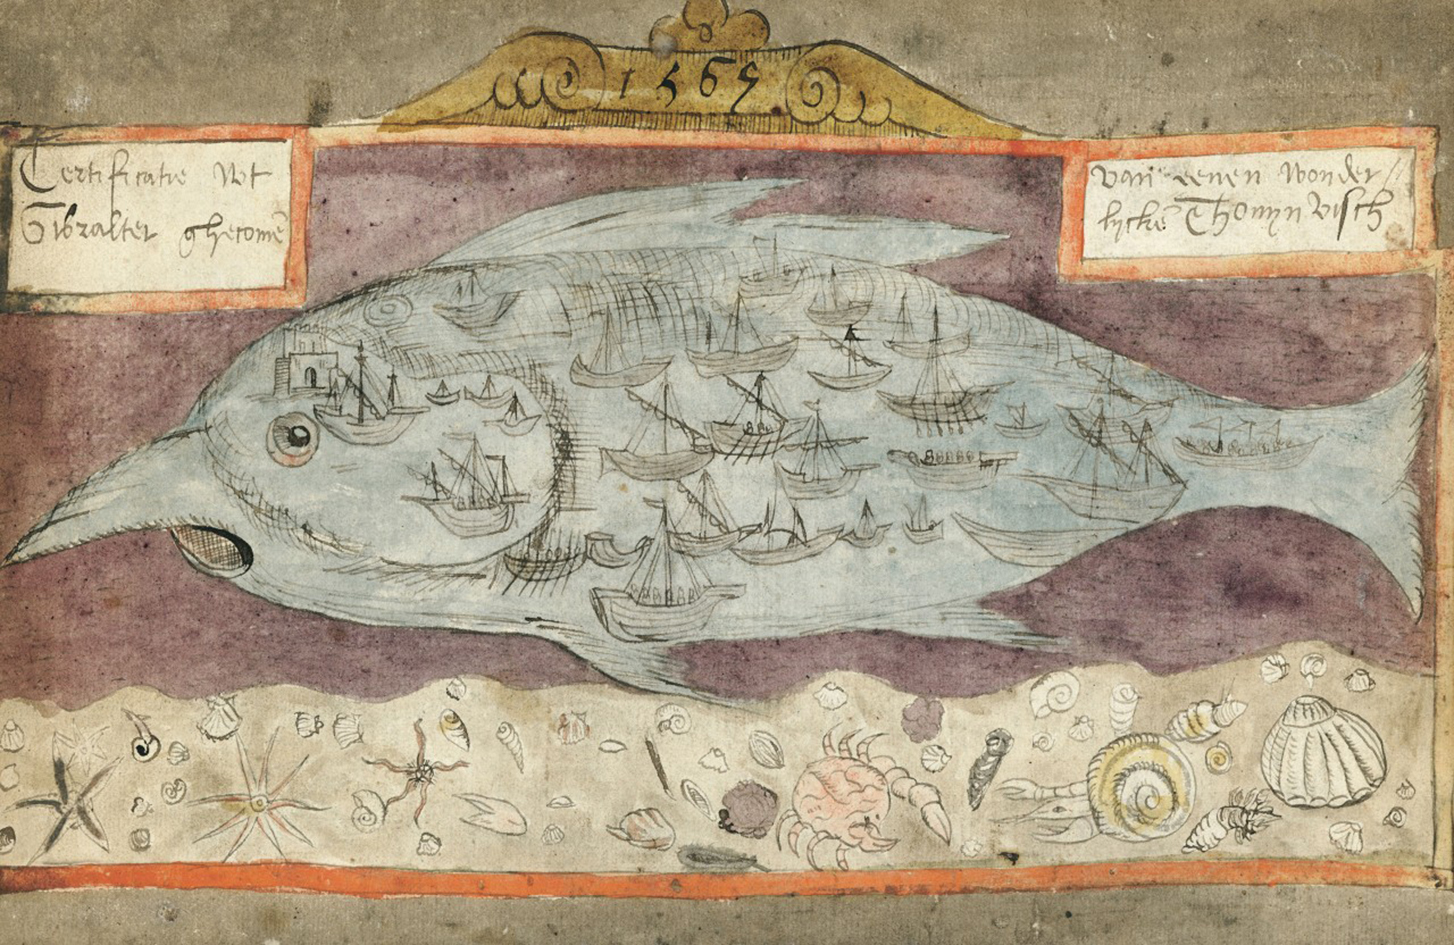 1565
Certificatie Wt
Gibralter ghecomē
van eenen wonder
lycke Thonyn visch